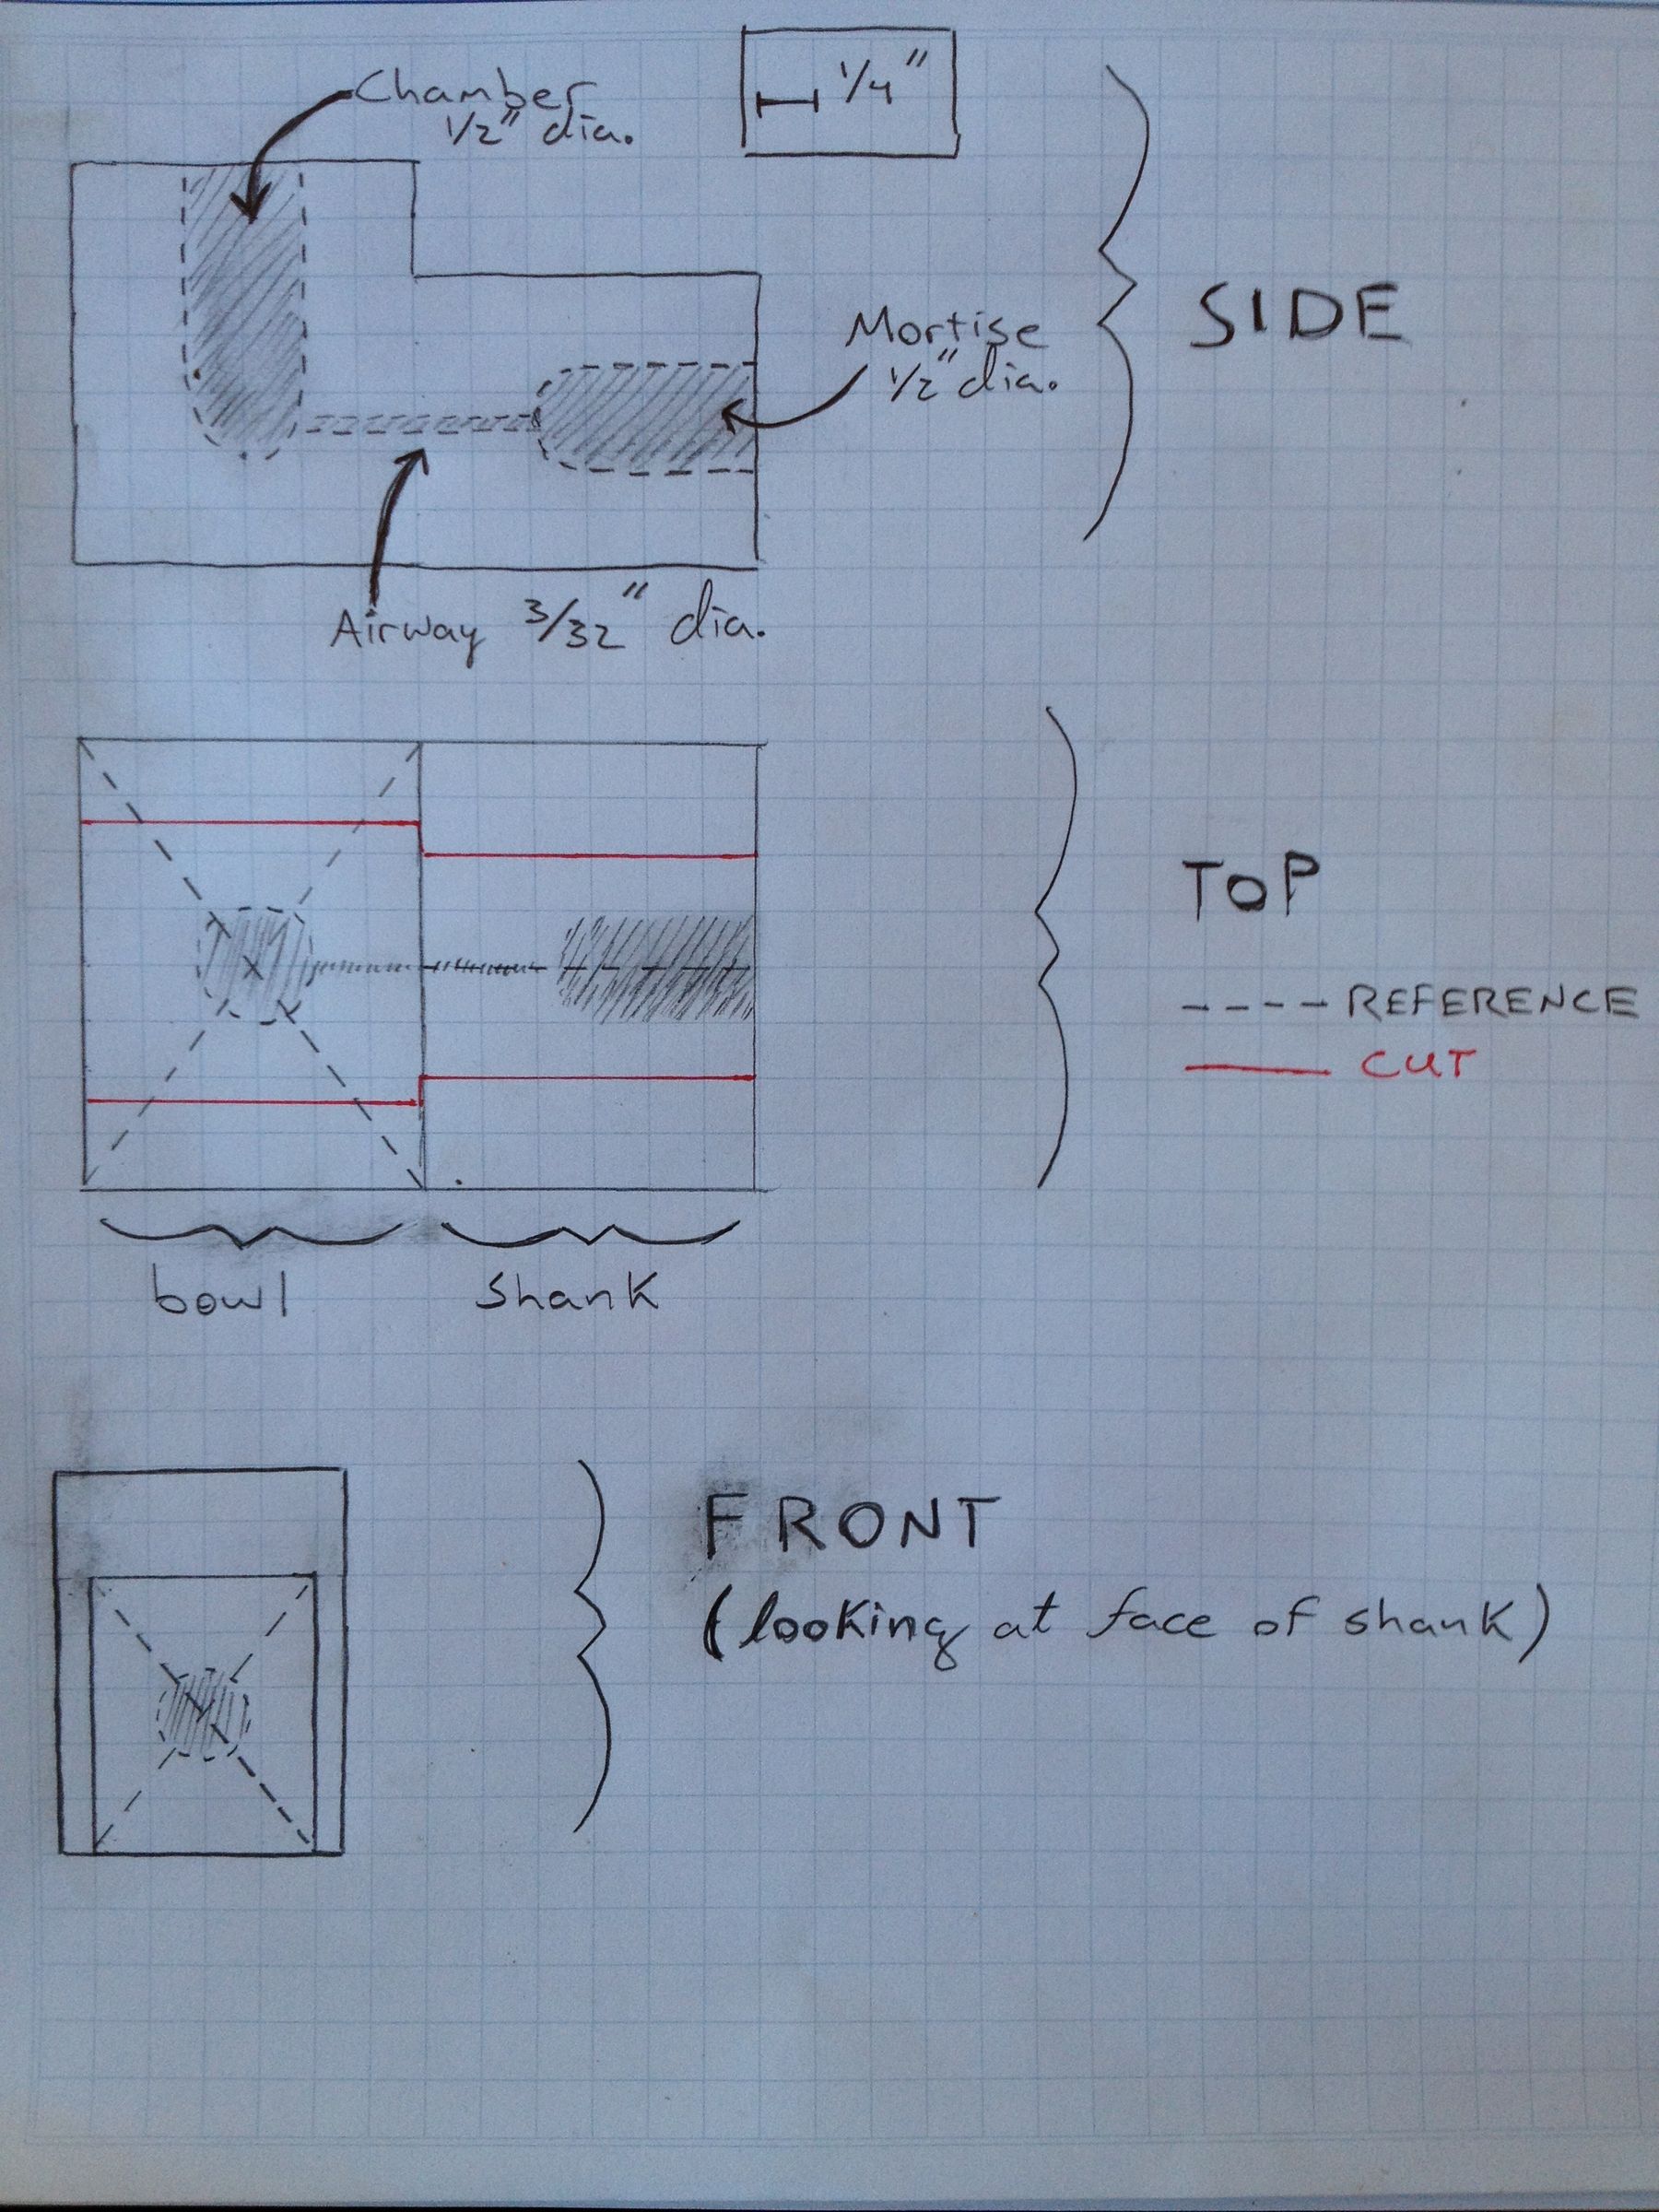 Chamber
1/2" dia.
1/4"
SIDE
Mortise
1/2" dia.
Airway 3/32" dia.
TOP
REFERENCE
CUT
bowl
Shank
FRONT
(looking at face of shank)